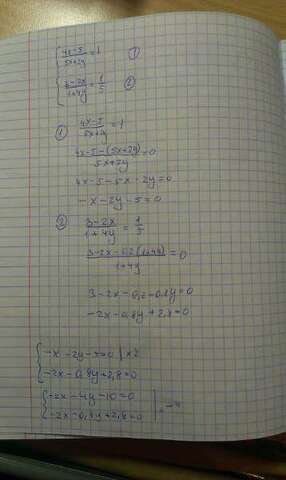 { (4x-5)/(5x+2y) = 1 ①
{ (3-2x)/(1+4y) = 1/5 ②
① (4x-5)/(5x+2y) = 1
(4x-5-(5x+2y))/(5x+2y) = 0
4x-5-5x-2y=0
-x-2y-5=0
② (3-2x)/(1+4y) = 1/5
(3-2x-0,2(1+4y))/(1+4y) = 0
3-2x-0,2-0,8y=0
-2x-0,8y+2,8=0
{ -x-2y-5=0 | ×2
{ -2x-0,8y+2,8=0
{ -2x-4y-10=0
{ -2x-0,8y+2,8=0